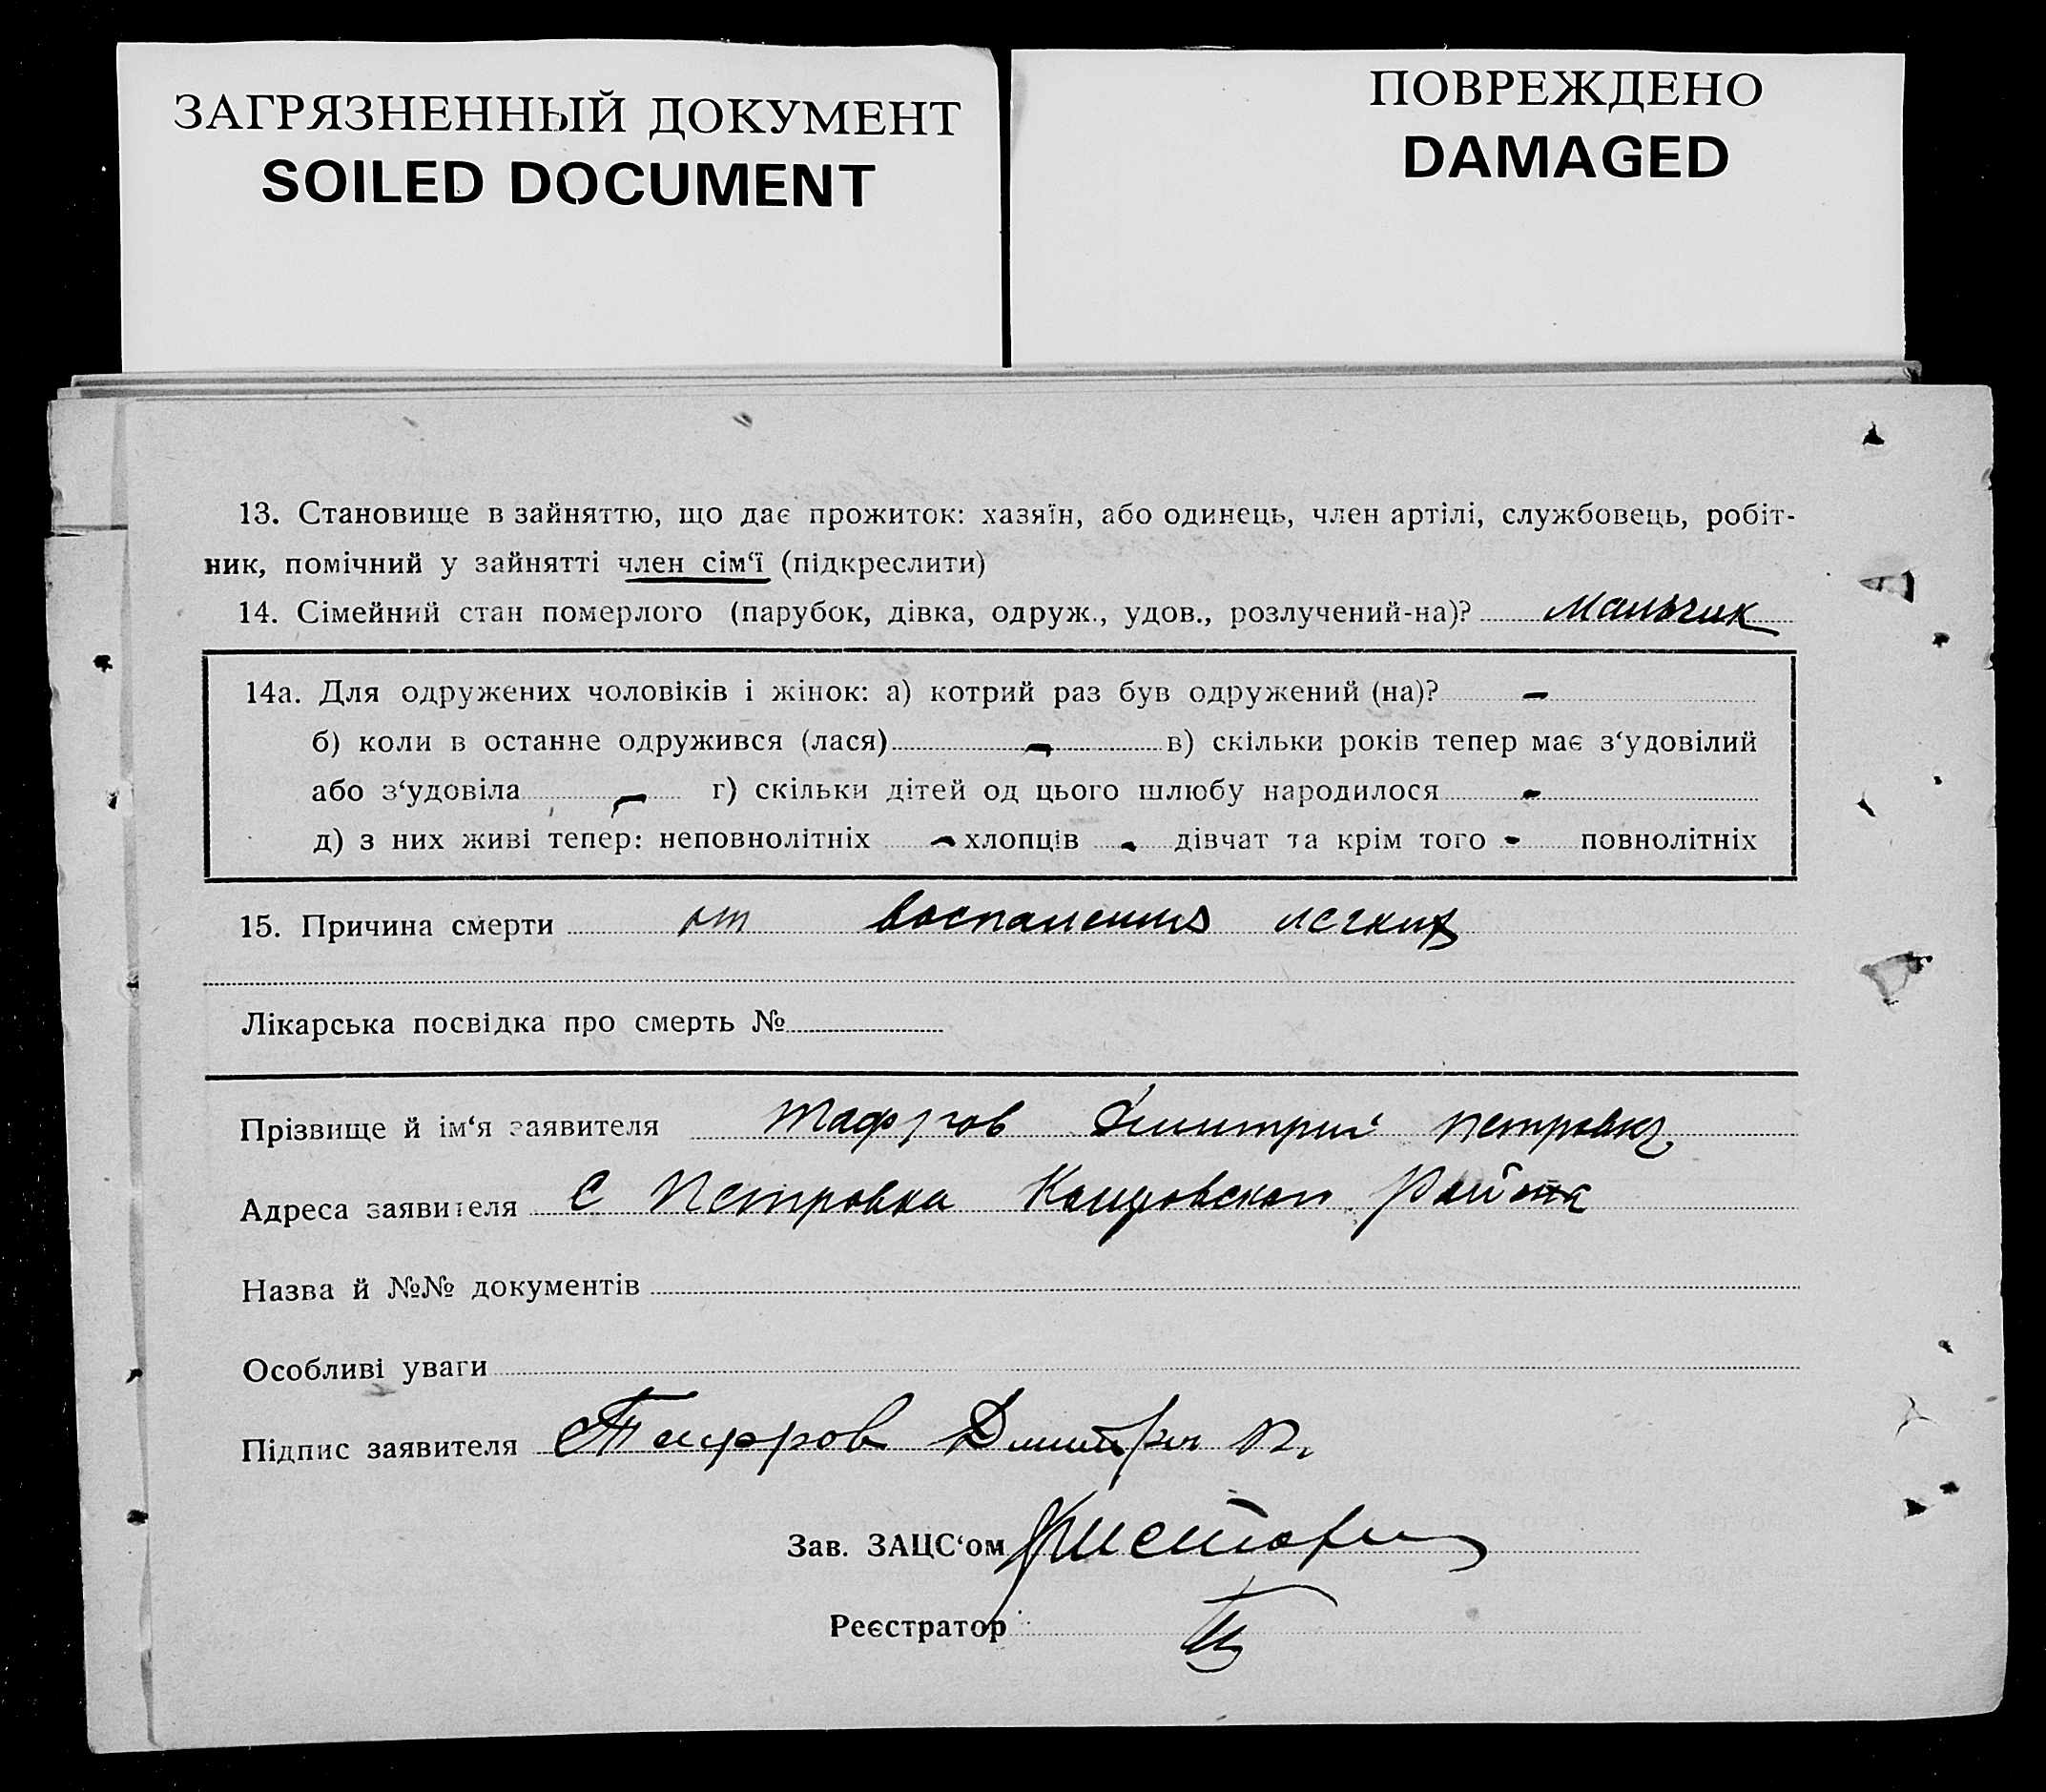 ЗАГРЯЗНЕННЫЙ ДОКУМЕНТ
SOILED DOCUMENT
ПОВРЕЖДЕНО
DAMAGED
13. Становище в зайняттю, що дає прожиток: хазяїн, або одинець, член артілі, службовець, робіт-
ник, помічний у зайнятті член сім‘ї (підкреслити)
14. Сімейний стан померлого (парубок, дівка, одруж., удов., розлучений-на)? Мальчик
14а. Для одружених чоловіків і жінок: а) котрий раз був одружений (на)? -
б) коли в останнє одружився (лася) - в) скільки років тепер має з‘удовілий
або з‘удовіла - г) скільки дітей од цього шлюбу народилося -
д) з них живі тепер: неповнолітніх - хлопців - дівчат та крім того - повнолітніх
15. Причина смерти от воспаления легких
Лікарська посвідка про смерть №
Прізвище й ім‘я заявителя Дмитрий Петрович
Адреса заявителя С Петровка Района
Назва й №№ документів
Особливі уваги
Підпис заявителя Дмитрий П.
Зав. ЗАЦС‘ом
Реєстратор